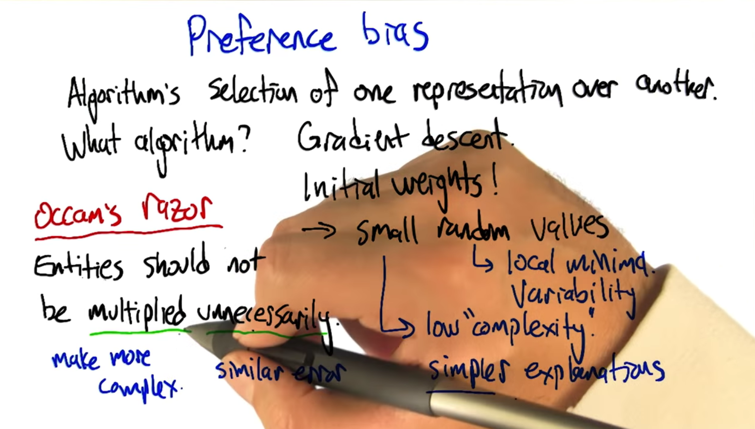 Preference bias
Algorithm's selection of one representation over another.
What algorithm? Gradient descent.
Initial weights!
→ small random values
↳ local minima.
variability
↳ low "complexity".
simpler explanations
Occam's razor
Entities should not
be multiplied unnecessarily.
make more
complex.
similar error